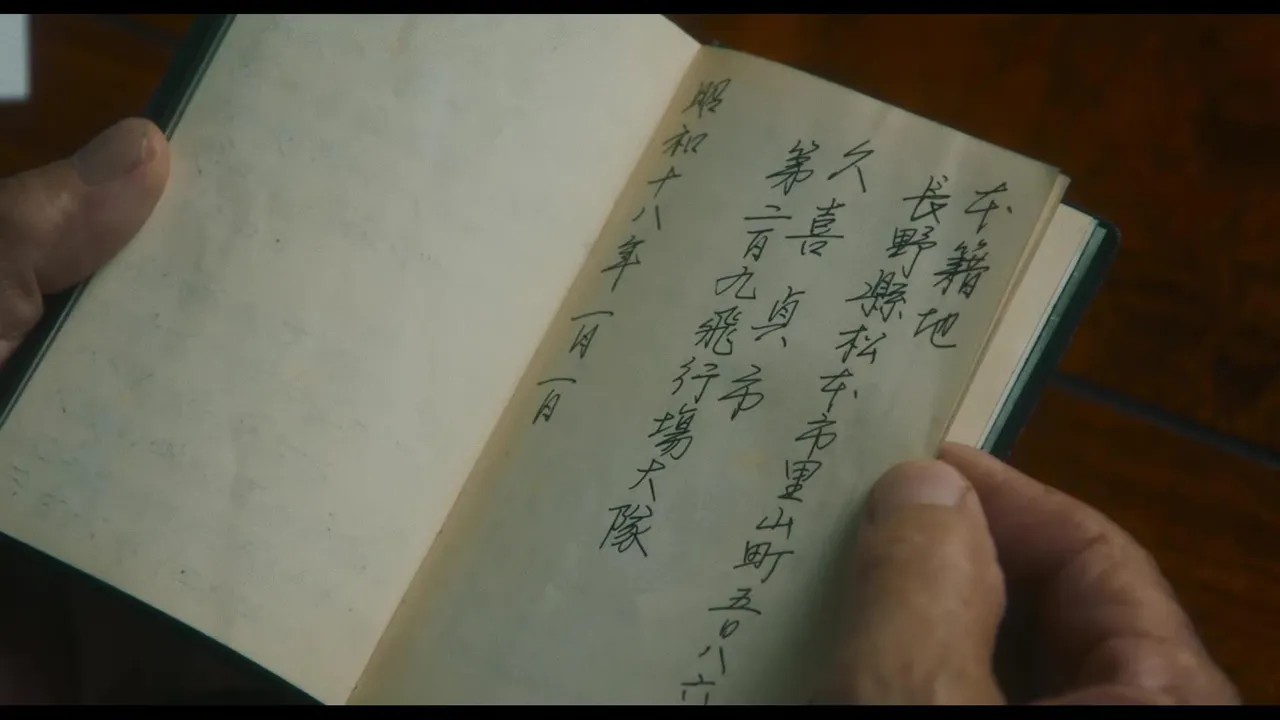 本籍地
長野縣松本市里山町五〇八六
久喜貞市
第二百九飛行場大隊
昭和十八年一月一日